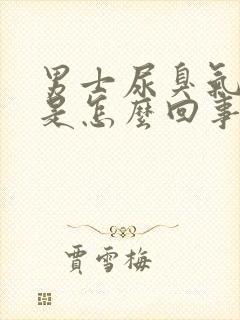 男士尿臭氣
是怎麼回事
賈雪梅